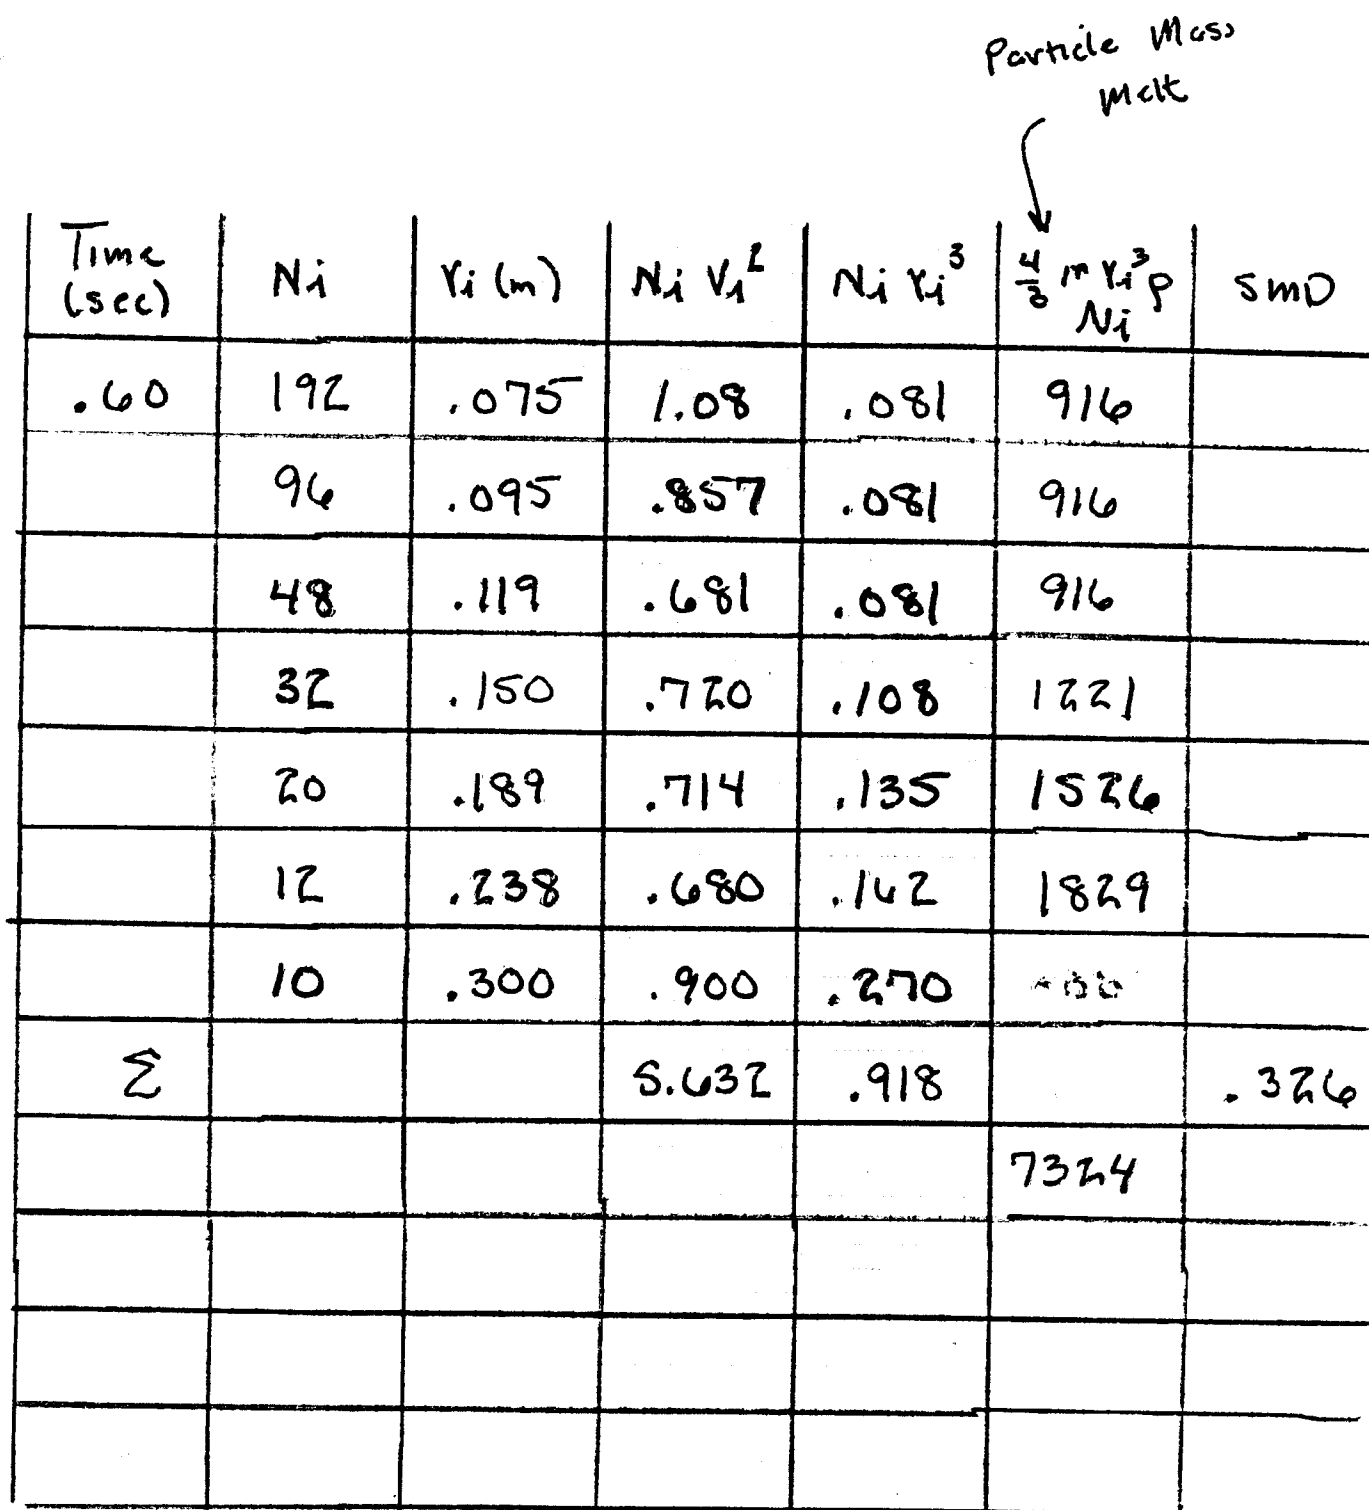 Particle Mass
Melt
Time (sec) Ni ri (m) Ni ri² Ni ri³ 4/3 π ri³ ρ Ni SMD
.60 192 .075 1.08 .081 916
96 .095 .857 .081 916
48 .119 .681 .081 916
32 .150 .720 .108 1221
20 .189 .714 .135 1526
12 .238 .680 .162 1829
10 .300 .900 .270
Σ 5.632 .918 .326
7324